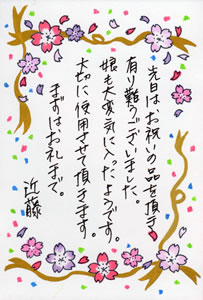 先日はお祝いの品を頂き
有り難うございました。
娘も大変気に入ったようです。
大切に使用させて頂きます。
まずはお礼まで。
近藤